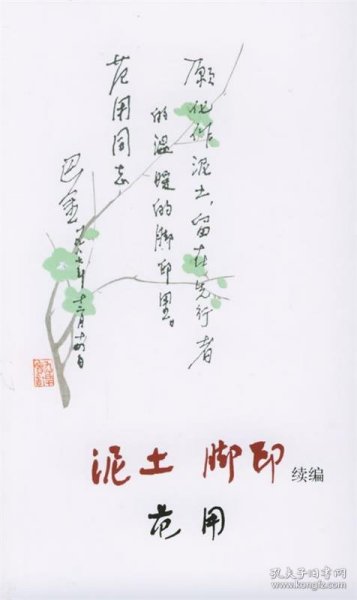 愿化作泥土，留在先行者
的温暖的脚印里。
范用同志
巴金
七年十二月
泥土 脚印 续编
范用
孔夫子旧书网
www.kongfz.com